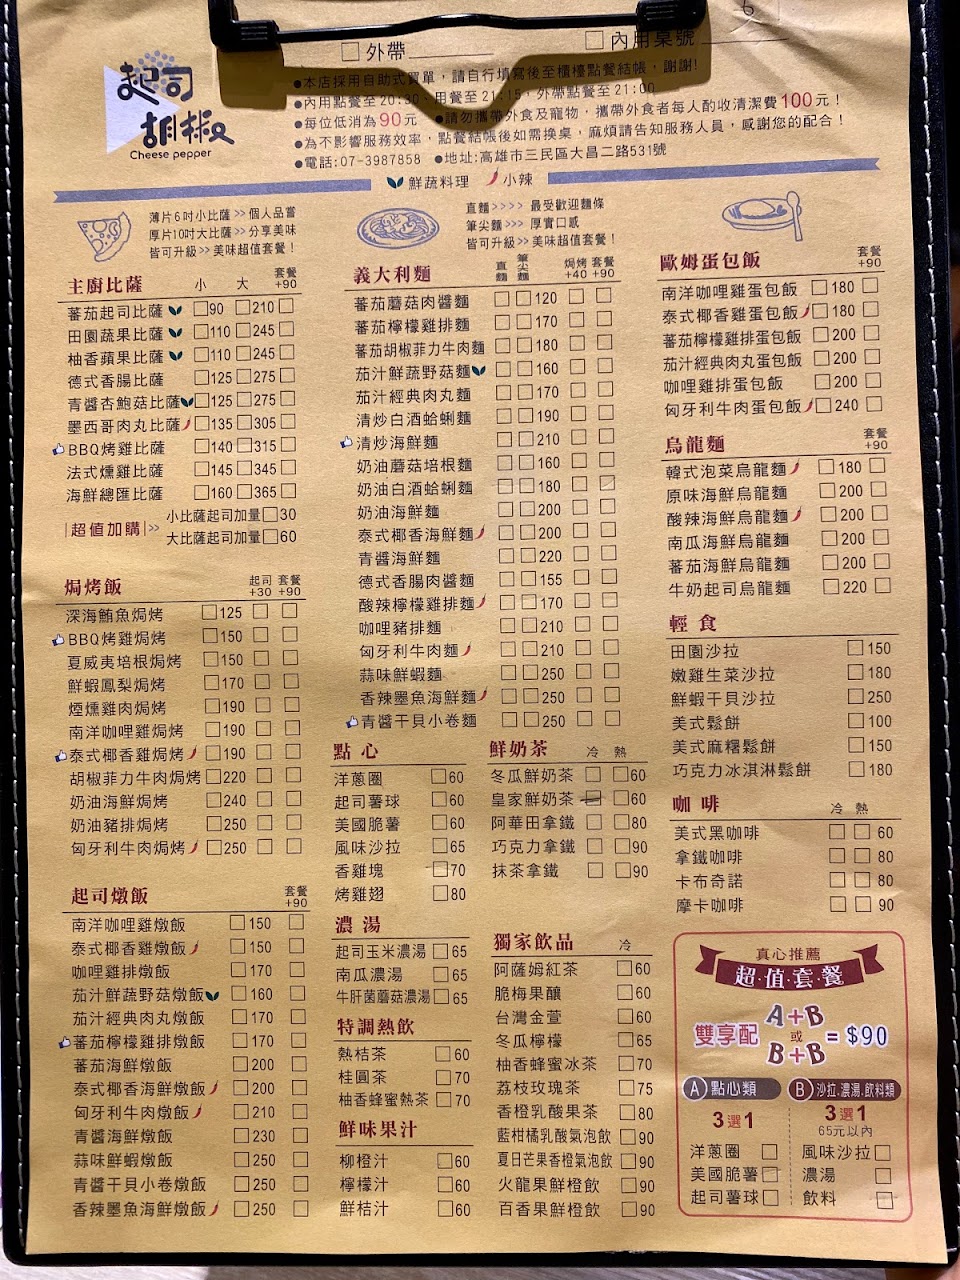 6
□外帶
□內用桌號
起司
胡椒
Cheese pepper
●本店採用自助式買單，請自行填寫後至櫃檯點餐結帳，謝謝!
●內用點餐至20:30、用餐至21:15，外帶點餐至21:00
●每位低消為90元 ●請勿攜帶外食及寵物，攜帶外食者每人酌收清潔費100元!
●為不影響服務效率，點餐結帳後如需換桌，麻煩請告知服務人員，感謝您的配合!
●電話:07-3987858 ●地址:高雄市三民區大昌二路531號
鮮蔬料理 小辣
薄片6吋小比薩>>個人品嘗
厚片10吋大比薩>>分享美味
皆可升級>>美味超值套餐!
主廚比薩 小 大 套餐+90
蕃茄起司比薩 □90 □210□
田園蔬果比薩 □110 □245□
柚香蘋果比薩 □110 □245□
德式香腸比薩 □125 □275□
青醬杏鮑菇比薩 □125 □275□
墨西哥肉丸比薩 □135 □305□
BBQ烤雞比薩 □140 □315□
法式燻雞比薩 □145 □345□
海鮮總匯比薩 □160 □365□
|超值加購|>> 小比薩起司加量□30
大比薩起司加量□60
焗烤飯 起司+30 套餐+90
深海鮪魚焗烤 □125 □ □
BBQ烤雞焗烤 □150 □ □
夏威夷培根焗烤 □150 □ □
鮮蝦鳳梨焗烤 □170 □ □
煙燻雞肉焗烤 □190 □ □
南洋咖哩雞焗烤 □190 □ □
泰式椰香雞焗烤 □190 □ □
胡椒菲力牛肉焗烤 □220 □ □
奶油海鮮焗烤 □240 □ □
奶油豬排焗烤 □250 □ □
匈牙利牛肉焗烤 □250 □ □
起司燉飯 套餐+90
南洋咖哩雞燉飯 □150 □
泰式椰香雞燉飯 □150 □
咖哩雞排燉飯 □170 □
茄汁鮮蔬野菇燉飯 □160 □
茄汁經典肉丸燉飯 □170 □
蕃茄檸檬雞排燉飯 □170 □
蕃茄海鮮燉飯 □200 □
泰式椰香海鮮燉飯 □200 □
匈牙利牛肉燉飯 □210 □
青醬海鮮燉飯 □230 □
蒜味鮮蝦燉飯 □250 □
青醬干貝小卷燉飯 □250 □
香辣墨魚海鮮燉飯 □250 □
直麵>>>> 最受歡迎麵條
筆尖麵>>> 厚實口感
皆可升級>>美味超值套餐!
義大利麵 直麵 筆尖麵 焗烤+40 套餐+90
蕃茄蘑菇肉醬麵 □□120 □ □
蕃茄檸檬雞排麵 □□170 □ □
蕃茄胡椒菲力牛肉麵 □□180 □ □
茄汁鮮蔬野菇麵 □□160 □ □
茄汁經典肉丸麵 □□170 □ □
清炒白酒蛤蜊麵 □□190 □ □
清炒海鮮麵 □□210 □ □
奶油蘑菇培根麵 □□160 □ □
奶油白酒蛤蜊麵 □□180 □ □
奶油海鮮麵 □□200 □ □
泰式椰香海鮮麵 □□200 □ □
青醬海鮮麵 □□220 □ □
德式香腸肉醬麵 □□155 □ □
酸辣檸檬雞排麵 □□170 □ □
咖哩豬排麵 □□210 □ □
匈牙利牛肉麵 □□210 □ □
蒜味鮮蝦麵 □□250 □ □
香辣墨魚海鮮麵 □□250 □ □
青醬干貝小卷麵 □□250 □ □
點心
洋蔥圈 □60
起司薯球 □60
美國脆薯 □60
風味沙拉 □65
香雞塊 □70
烤雞翅 □80
濃湯
起司玉米濃湯 □65
南瓜濃湯 □65
牛肝菌蘑菇濃湯 □65
特調熱飲
熱桔茶 □60
桂圓茶 □70
柚香蜂蜜熱茶 □70
鮮味果汁
柳橙汁 □60
檸檬汁 □60
鮮桔汁 □60
鮮奶茶 冷 熱
冬瓜鮮奶茶 □ □60
皇家鮮奶茶 □ □60
阿華田拿鐵 □ □80
巧克力拿鐵 □ □90
抹茶拿鐵 □ □90
獨家飲品 冷
阿薩姆紅茶 □60
脆梅果釀 □60
台灣金萱 □60
冬瓜檸檬 □65
柚香蜂蜜冰茶 □70
荔枝玫瑰茶 □75
香橙乳酸果茶 □80
藍柑橘乳酸氣泡飲 □90
夏日芒果香橙氣泡飲 □90
火龍果鮮橙飲 □90
百香果鮮橙飲 □90
歐姆蛋包飯 套餐+90
南洋咖哩雞蛋包飯 □180 □
泰式椰香雞蛋包飯 □180 □
蕃茄檸檬雞排蛋包飯 □200 □
茄汁經典肉丸蛋包飯 □200 □
咖哩雞排蛋包飯 □200 □
匈牙利牛肉蛋包飯 □240 □
烏龍麵 套餐+90
韓式泡菜烏龍麵 □180 □
原味海鮮烏龍麵 □200 □
酸辣海鮮烏龍麵 □200 □
南瓜海鮮烏龍麵 □200 □
蕃茄海鮮烏龍麵 □200 □
牛奶起司烏龍麵 □220 □
輕食
田園沙拉 □150
嫩雞生菜沙拉 □180
鮮蝦干貝沙拉 □250
美式鬆餅 □100
美式麻糬鬆餅 □150
巧克力冰淇淋鬆餅 □180
咖啡 冷 熱
美式黑咖啡 □ □ 60
拿鐵咖啡 □ □ 80
卡布奇諾 □ □ 80
摩卡咖啡 □ □ 90
真心推薦
超·值·套·餐
雙享配 A+B 或 B+B =$90
A 點心類
3選1
洋蔥圈 □
美國脆薯□
起司薯球□
B 沙拉.濃湯.飲料類
3選1
65元以內
風味沙拉□
濃湯 □
飲料 □